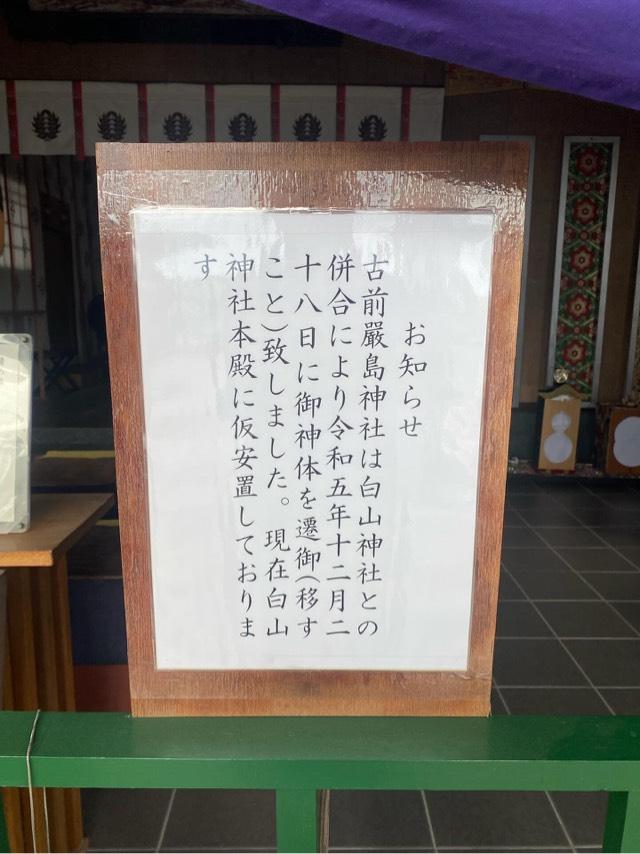 お知らせ
古前嚴島神社は白山神社との
併合により令和五年十二月二
十八日に御神体を遷御(移す
こと)致しました。現在白山
神社本殿に仮安置しておりま
す